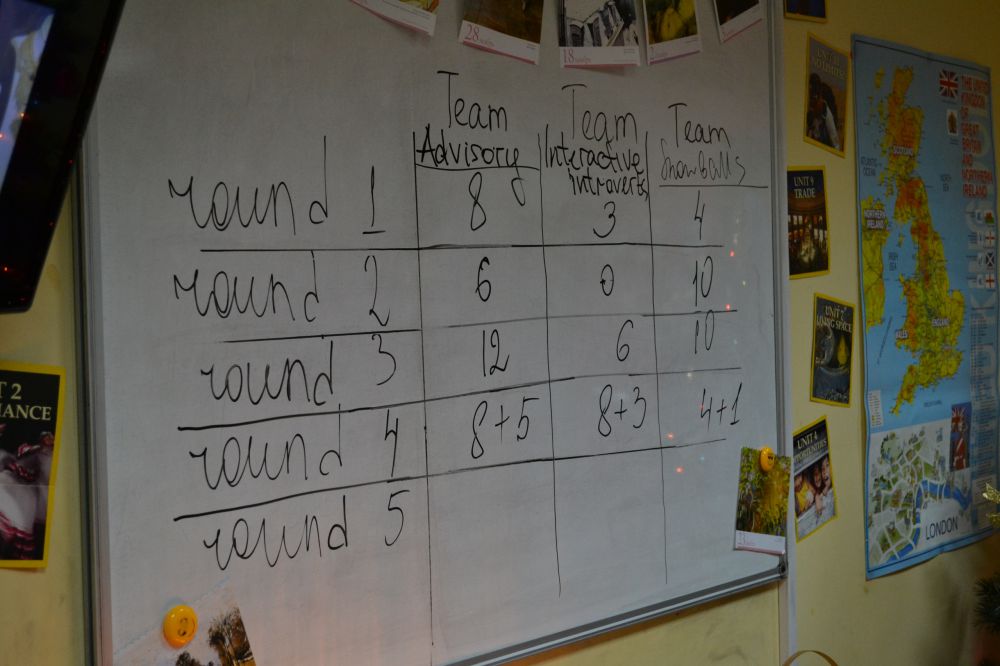 28
18
Team Team Team
Advisory Interactive Snowballs
introverts
round 1 8 3 4
round 2 6 0 10
round 3 12 6 10
round 4 8+5 8+3 4+1
round 5
2
UNIT 9
TRADE
UNIT 7
LIVING SPACE
UNIT 4
THE UNITED
KINGDOM
OF
GREAT
BRITAIN
AND
NORTHERN
IRELAND
SCOTLAND
NORTH
SEA
NORTHERN
IRELAND
IRISH
SEA
WALES
ENGLAND
LONDON